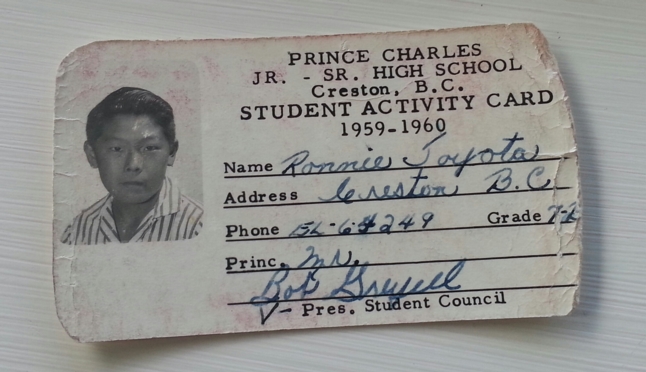 PRINCE CHARLES
JR. - SR. HIGH SCHOOL
Creston, B.C.
STUDENT ACTIVITY CARD
1959-1960
Name Ronnie Toyota
Address Creston B.C.
Phone Grade
Princ. Mr.
Bob
Pres. Student Council